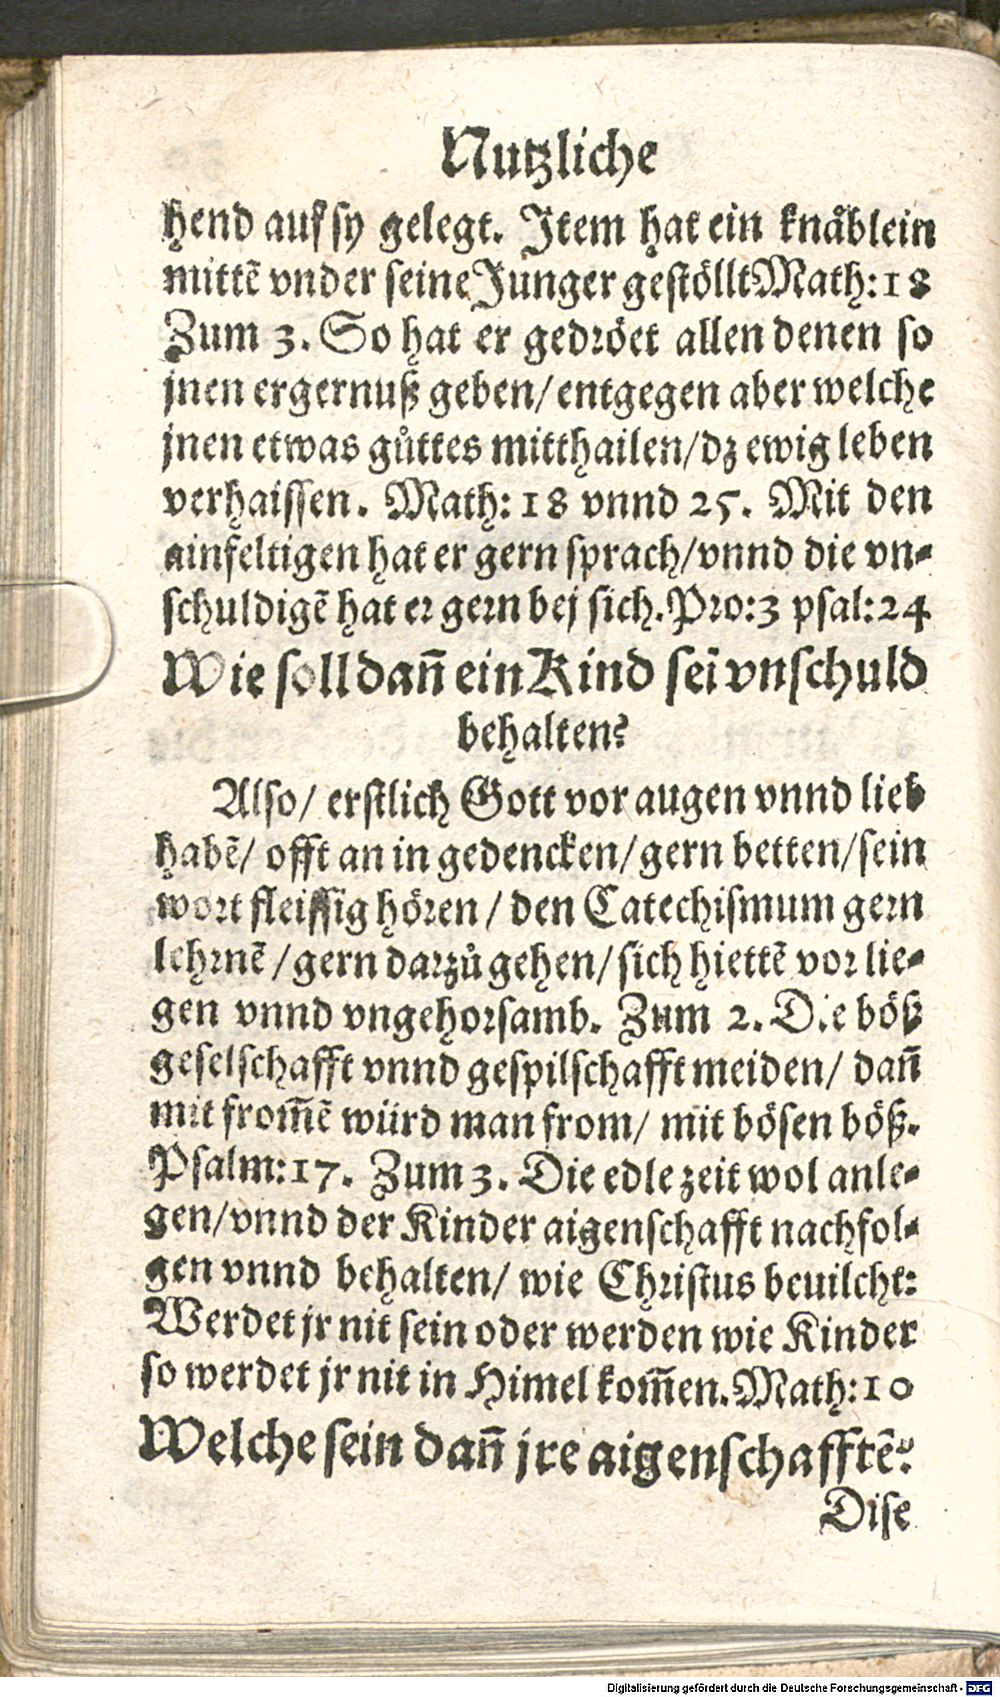 Nutzliche
hend auf sy gelegt. Item hat ein knåblein
mittē vnder seine Junger gestöllt Math: 18
Zum 3. So hat er gedröet allen denen so
jnen ergernuß geben/ entgegen aber welche
jnen etwas gůttes mitthailen/ dz ewig leben
verhaissen. Math: 18 vnnd 25. Mit den
ainfeltigen hat er gern sprach/ vnnd die vn-
schuldigē hat er gern bej sich. Pro: 3 psal: 24
Wie soll dañ ein Kind seī vnschuld
behalten?
Also/ erstlich Gott vor augen vnnd lieb
habē/ offt an in gedencken/ gern betten/ sein
wort fleissig hören/ den Catechismum gern
lehrnē/ gern darzů gehen/ sich hiettē vor lie-
gen vnnd vngehorsamb. Zum 2. Die böß
geselschafft vnnd gespilschafft meiden/ dañ
mit from̄ē würd man from/ mit bösen böß.
Psalm: 17. Zum 3. Die edle zeit wol anle-
gen/ vnnd der Kinder aigenschafft nachfol-
gen vnnd behalten/ wie Christus beuilcht:
Werdet jr nit sein oder werden wie Kinder
so werdet jr nit in Himel kom̄en. Math: 10
Welche sein dañ jre aigenschafftē?
Dise
Digitalisierung gefördert durch die Deutsche Forschungsgemeinschaft - DFG